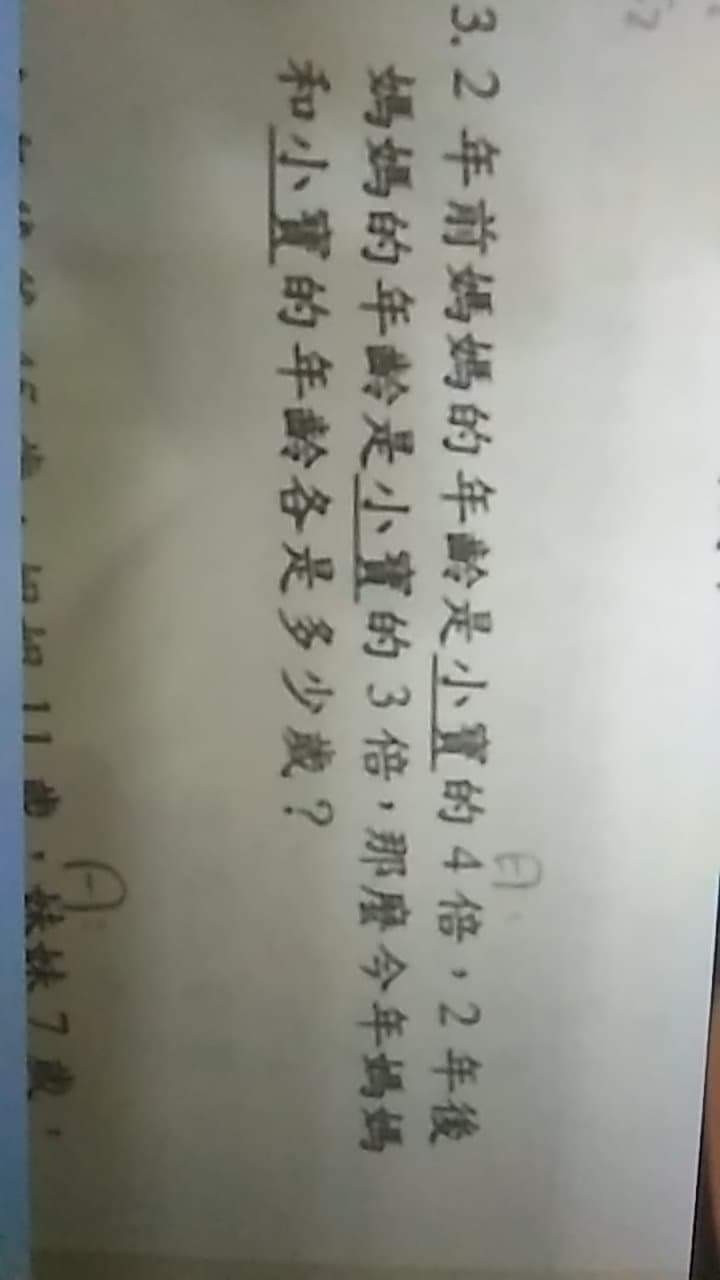 3. 2 年前媽媽的年齡是小寶的 4 倍，2 年後
媽媽的年齡是小寶的 3 倍，那麼今年媽媽
和小寶的年齡各是多少歲？
姐姐 11 歲，妹妹 7 歲，